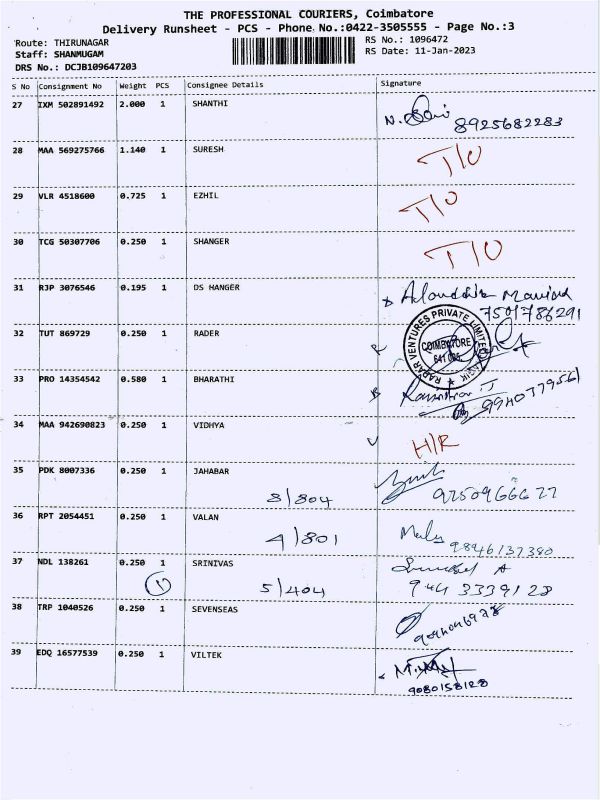 THE PROFESSIONAL COURIERS, Coimbatore
Delivery Runsheet - PCS - Phone No.:0422-3505555 - Page No.:3
Route: THIRUNAGAR
Staff: SHANMUGAM
DRS No.: DCJB109647203
RS No.: 1096472
RS Date: 11-Jan-2023
S No Consignment No Weight PCS Consignee Details Signature
27 IXM 502891492 2.000 1 SHANTHI
N. 8925682283
28 MAA 569275766 1.140 1 SURESH T/O
29 VLR 4518600 0.725 1 EZHIL T/O
30 TCG 50307706 0.250 1 SHANGER T/O
31 RJP 3076546 0.195 1 DS HANGER
7501786291
32 TUT 869729 0.250 1 RADER
RADAR VENTURES PRIVATE LIMITED
COIMBATORE
33 PRO 14354542 0.580 1 BHARATHI
34 MAA 942690823 0.250 1 VIDHYA H/R
35 PDK 8007336 0.250 1 JAHABAR
8/804
36 RPT 2054451 0.250 1 VALAN
4/801 9846137380
37 NDL 138261 0.250 1 SRINIVAS
1 5/404 944 3339128
38 TRP 1040526 0.250 1 SEVENSEAS
39 EDQ 16577539 0.250 1 VILTEK
9080158128